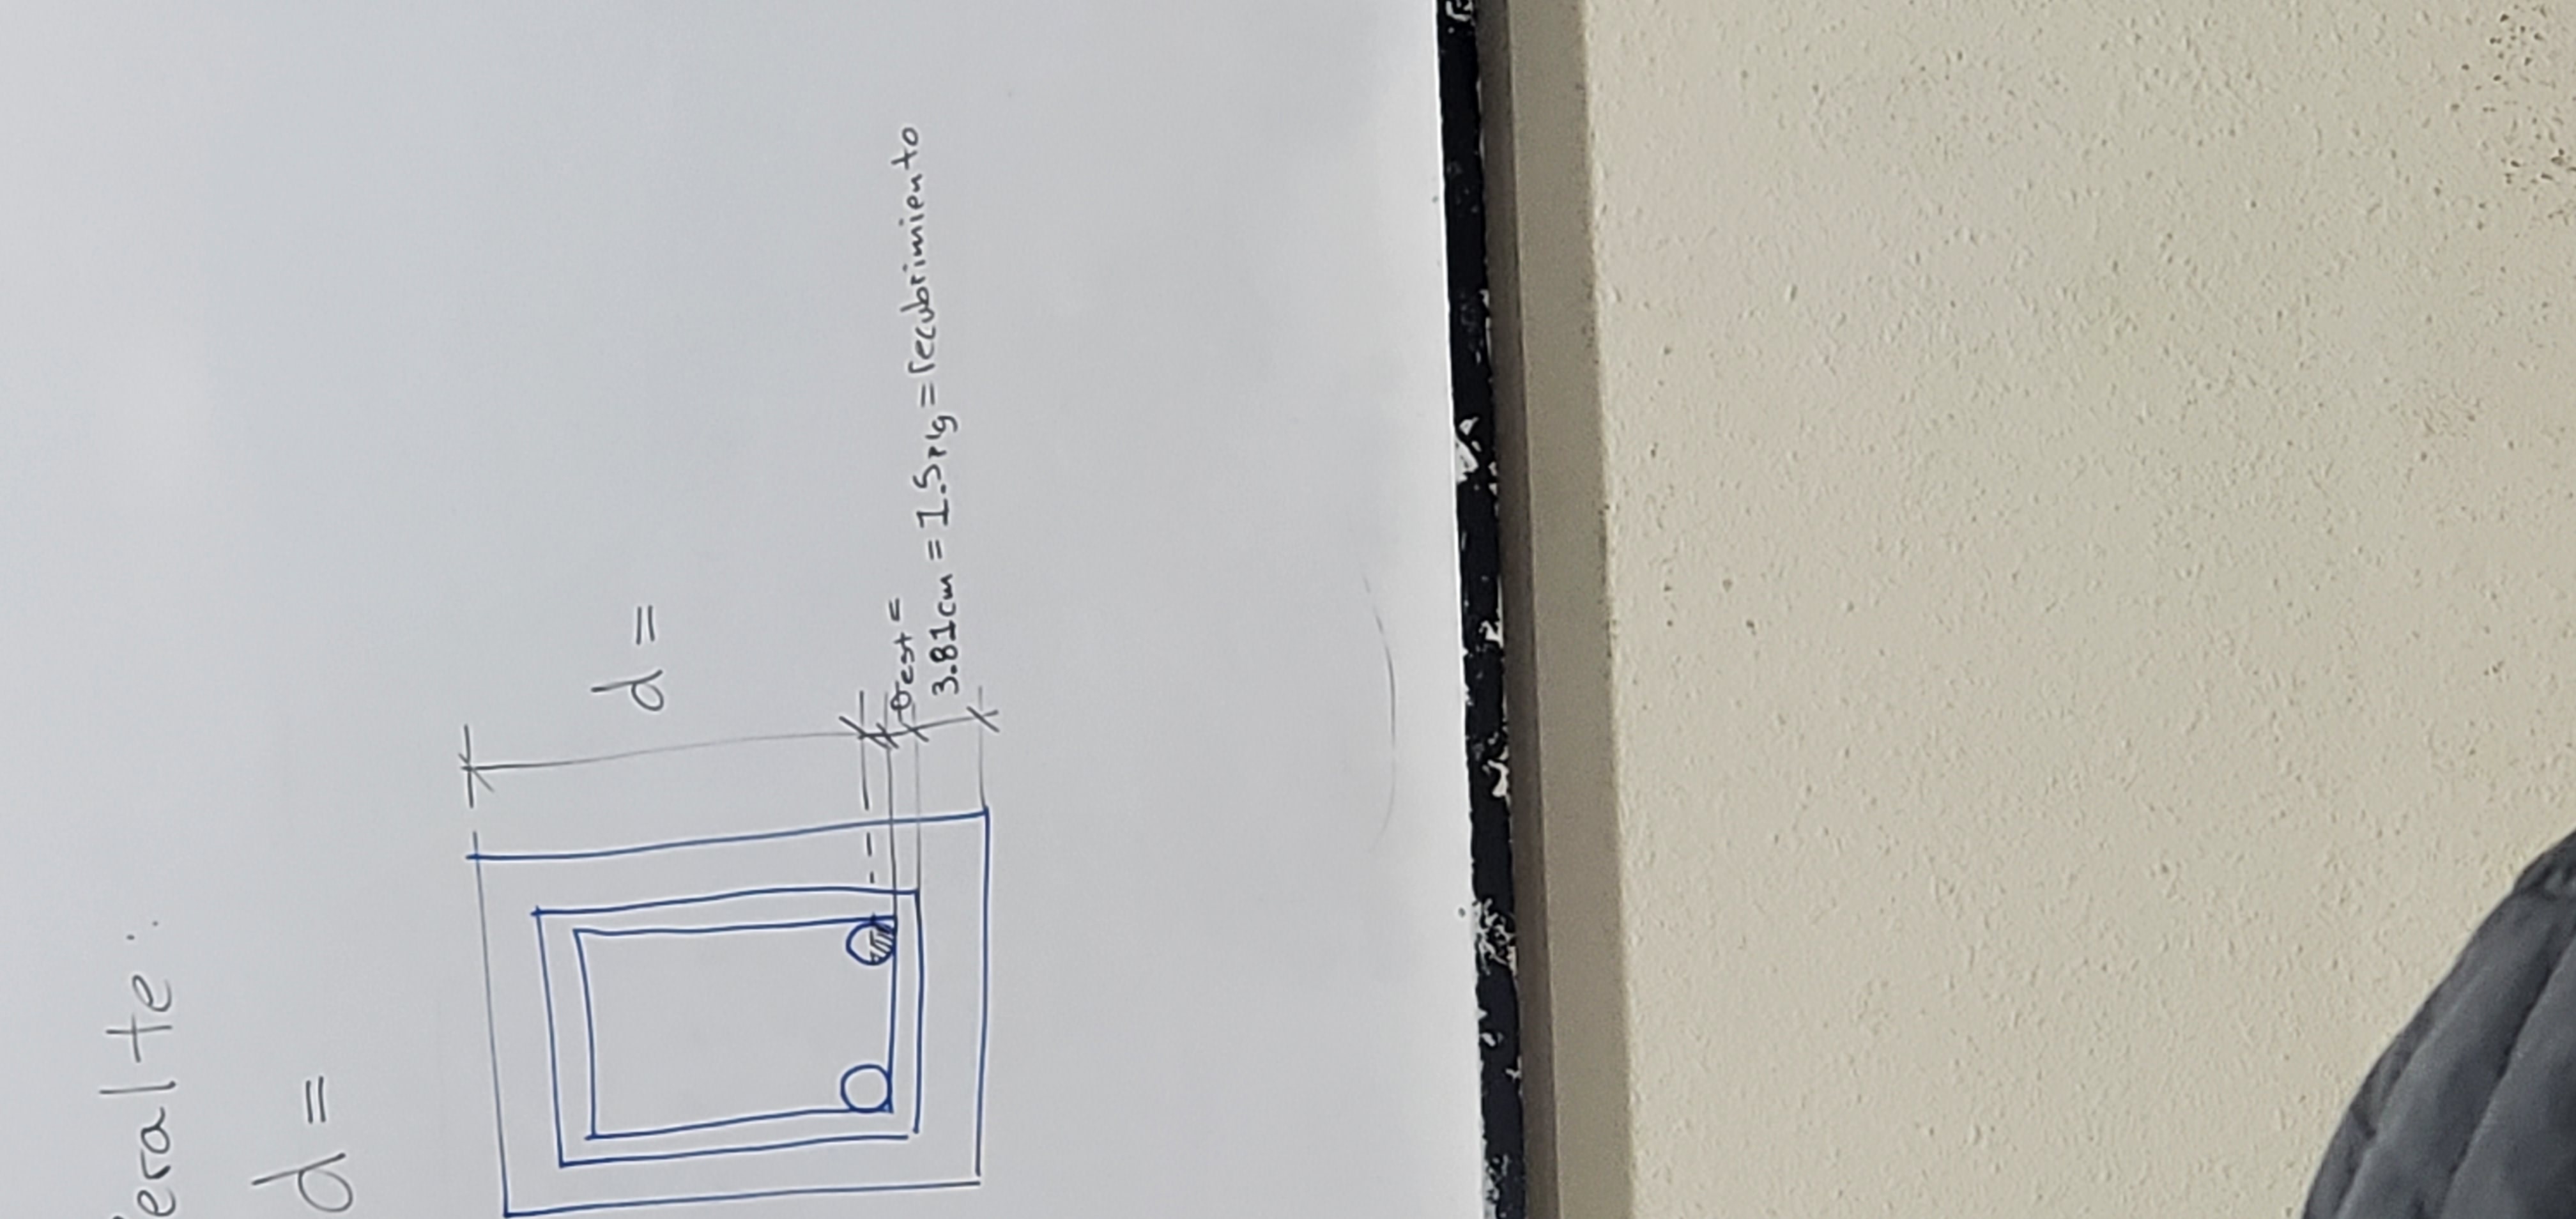 eralte:
d =
d =
Øest =
3.81cm = 1.5plg = recubrimiento